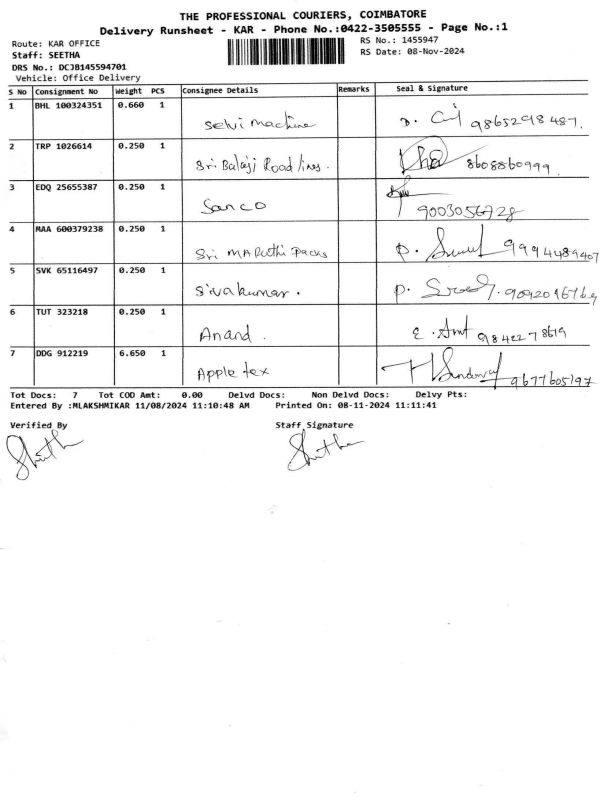 THE PROFESSIONAL COURIERS, COIMBATORE
Delivery Runsheet - KAR - Phone No.:0422-3505555 - Page No.:1
Route: KAR OFFICE RS No.: 1455947
Staff: SEETHA RS Date: 08-Nov-2024
DRS No.: DCJB145594701
Vehicle: Office Delivery
S No Consignment No Weight PCS Consignee Details Remarks Seal & Signature
1 BHL 100324351 0.660 1
Selvi Machine 9865298487.
2 TRP 1026614 0.250 1
Sri Balaji Road lines. 8608860999
3 EDQ 25655387 0.250 1
Sanco 9003056728
4 MAA 600379238 0.250 1
Sri MARuthi Packs 9994489407
5 SVK 65116497 0.250 1
Sivakumar. P.
6 TUT 323218 0.250 1
Anand. E.
7 DDG 912219 6.650 1
Apple tex 9677605797
Tot Docs: 7 Tot COD Amt: 0.00 Delvd Docs: Non Delvd Docs: Delvy Pts:
Entered By :MLAKSHMIKAR 11/08/2024 11:10:48 AM Printed On: 08-11-2024 11:11:41
Verified By Staff Signature